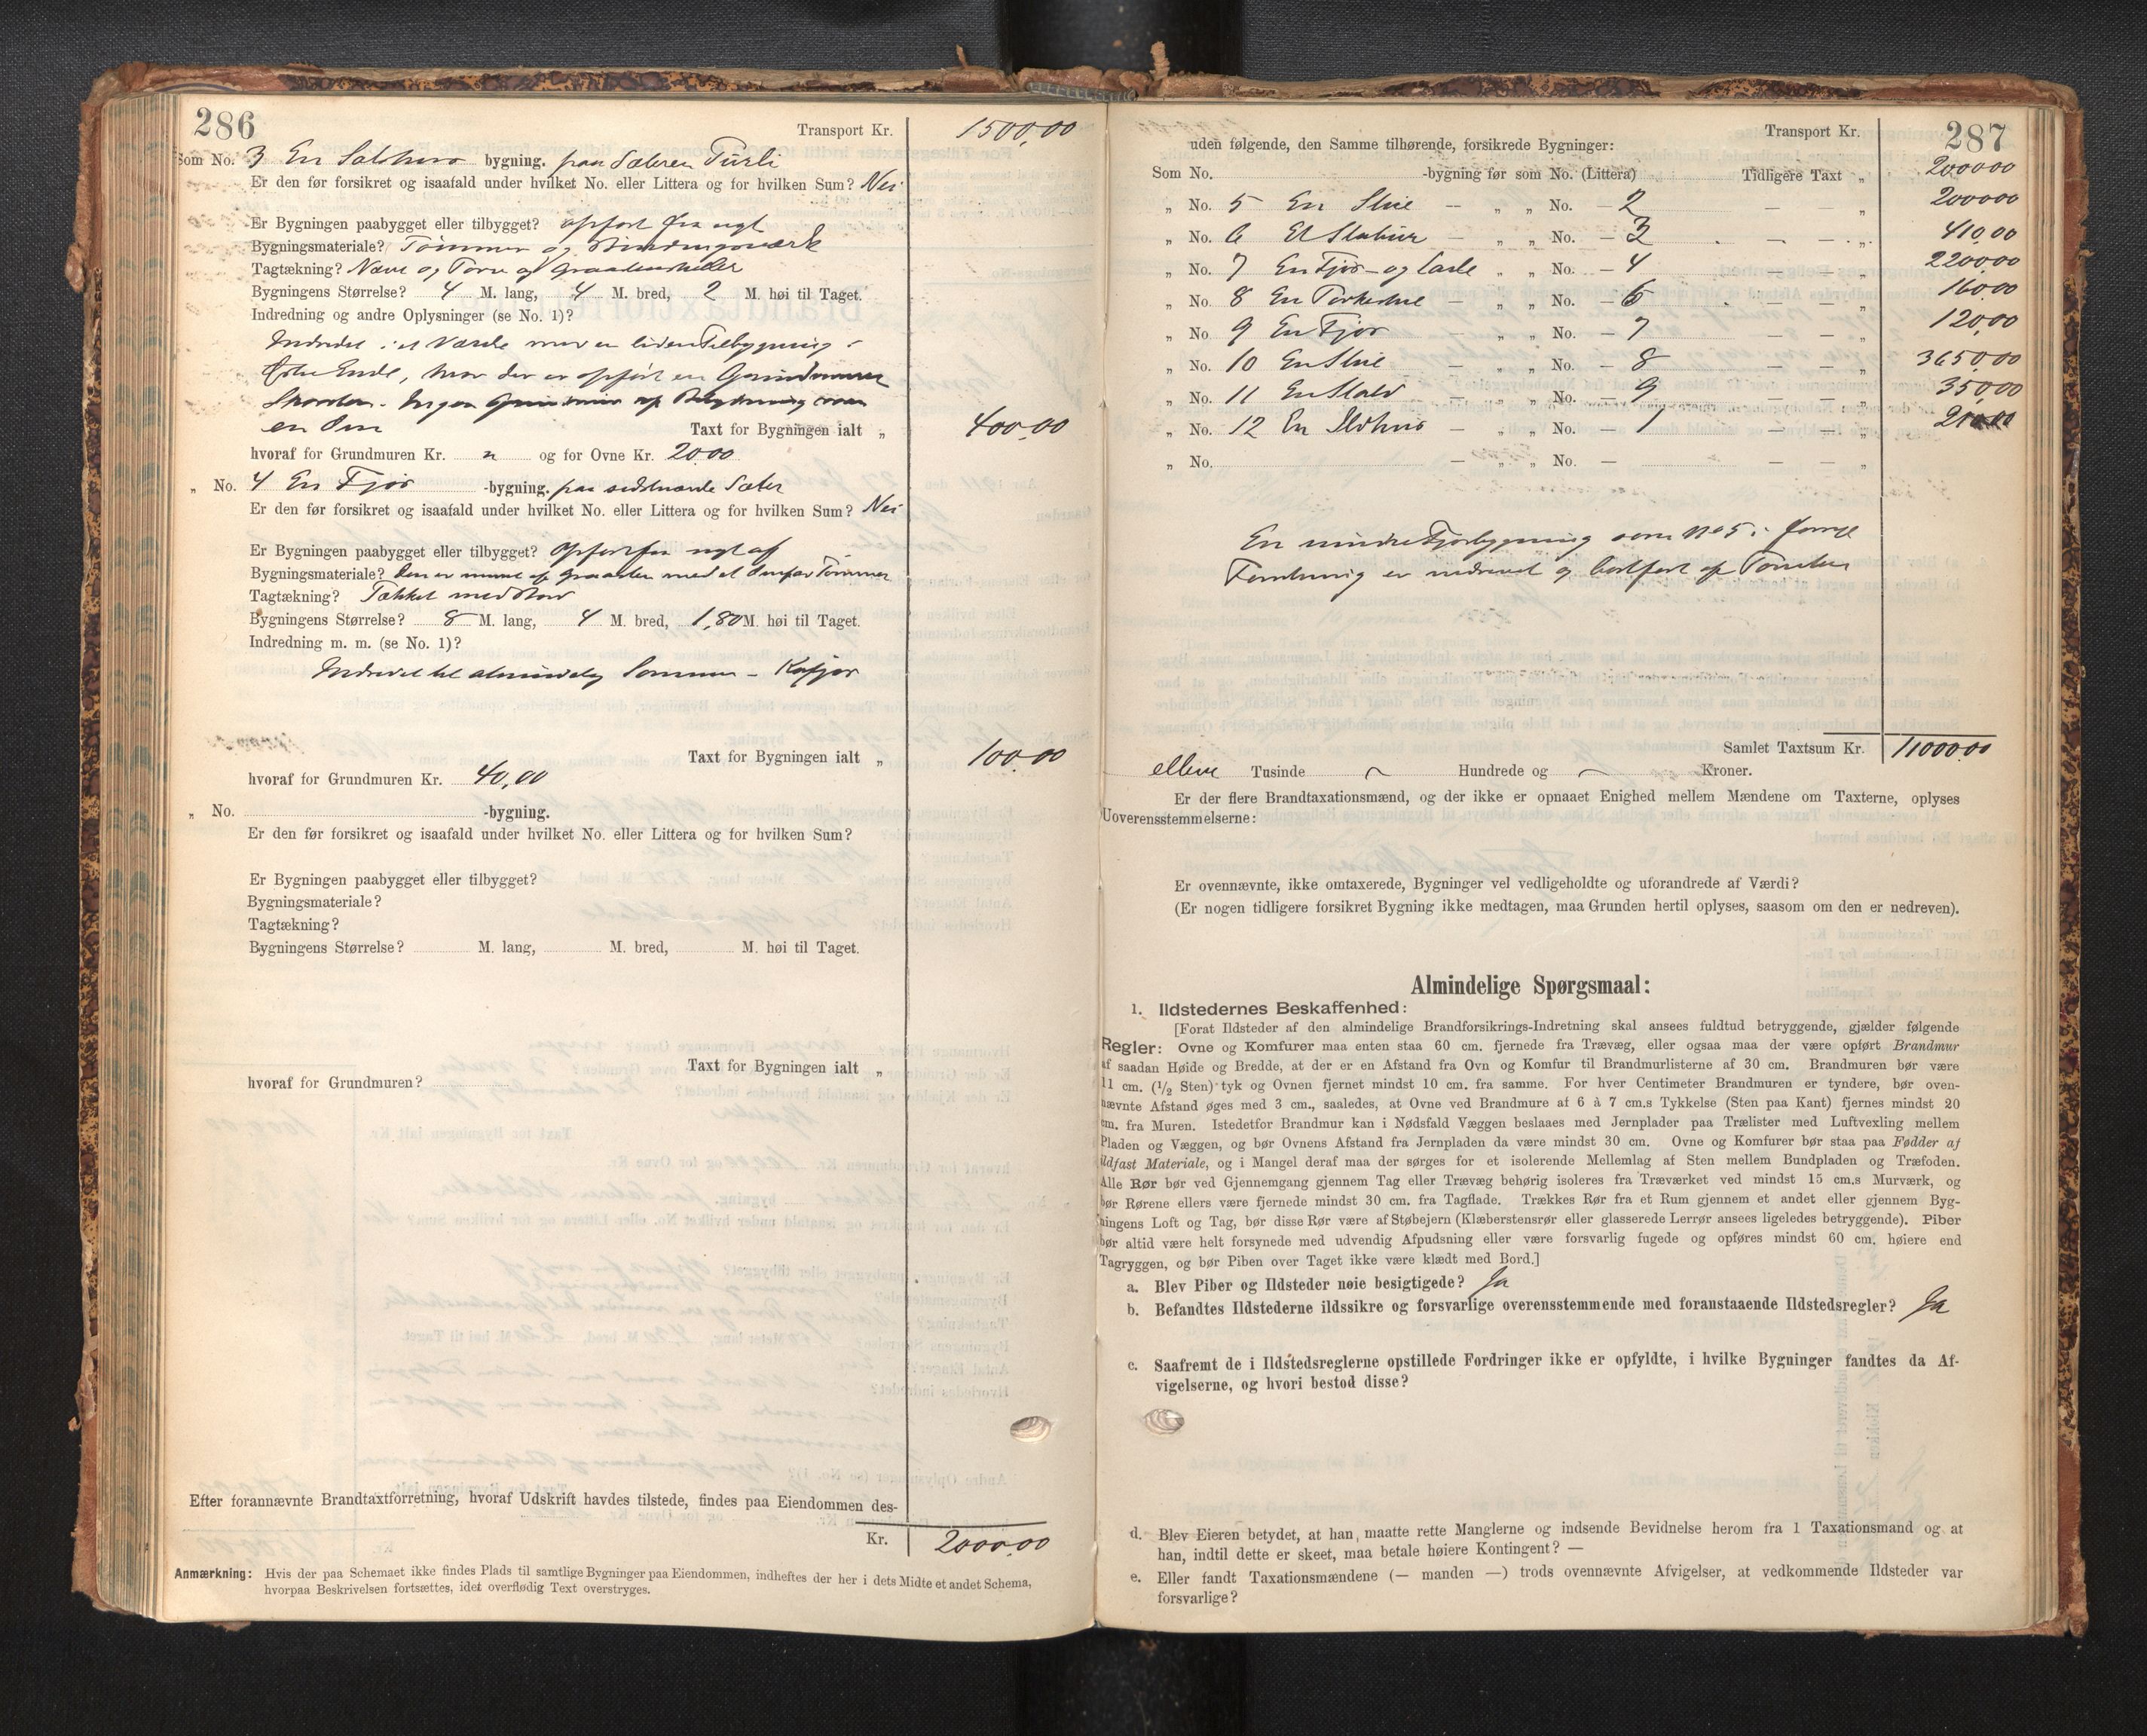 286
Transport Kr. 1500,00
Som No. 3 En Selshus bygning. paa Sæteren Turli
Er den før forsikret og isaafald under hvilket No. eller Littera og for hvilken Sum? Nei
Er Bygningen paabygget eller tilbygget? opført fra nyt
Bygningsmateriale? Tømmer og Bindingsværk
Tagtækning? Næver og Torv og Graastensheller
Bygningens Størrelse? 4 M. lang, 4 M. bred, 2 M. høi til Taget.
Indredning og andre Oplysninger (se No. 1)?
Indredet i et Værelse med en liden Tilbygning i
Østre Ende, hvor der er opført en Graastensmuret
Skorsten. Ingen Grundmur af Betydning
en Ovn Taxt for Bygningen ialt „ 400,00
hvoraf for Grundmuren Kr. „ og for Ovne Kr. 20,00
„ No. 4 En Fjøs -bygning. paa sidstnævnte Sæter
Er den før forsikret og isaafald under hvilket No. eller Littera og for hvilken Sum? Nei
Er Bygningen paabygget eller tilbygget? Opført fra nyt af
Bygningsmateriale? Den er muret af Graasten med et Omfar Tømmer
Tagtækning? Tækket med Torv
Bygningens Størrelse? 8 M. lang, 4 M. bred, 1,80 M. høi til Taget.
Indredning m. m. (se No. 1)?
Indredet til almindelig Sommer-Kofjøs
Taxt for Bygningen ialt „ 100,00
hvoraf for Grundmuren Kr. 40,00
„ No. -bygning.
Er den før forsikret og isaafald under hvilket No. eller Littera og for hvilken Sum?
Er Bygningen paabygget eller tilbygget?
Bygningsmateriale?
Tagtækning?
Bygningens Størrelse? M. lang, M. bred, M. høi til Taget.
Taxt for Bygningen ialt „
hvoraf for Grundmuren?
Efter forannævnte Brandtaxtforretning, hvoraf Udskrift havdes tilstede, findes paa Eiendommen des-
Kr. 2000,00
Anmærkning: Hvis der paa Schemaet ikke findes Plads til samtlige Bygninger paa Eiendommen, indheftes der her i dets Midte et andet Schema,
hvorpaa Beskrivelsen fortsættes, idet overflødig Text overstryges.
287
Transport Kr. 2000,00
uden følgende, den Samme tilhørende, forsikrede Bygninger:
Som No. -bygning før som No. (Littera) Tidligere Taxt „
„ No. 5 En Stue — „ „ No. — 2 — „ 2000,00
„ No. 6 Et Stabur — „ „ No. — 3 — „ 410,00
„ No. 7 En Fjøs- og Lade „ „ No. — 4 — — „ 2200,00
„ No. 8 En Tørkestue „ „ No. — 6 — „ 160,00
„ No. 9 En Fjøs — „ „ No. — 7 — — „ 120,00
„ No. 10 En Stue — „ „ No. — 8 — — „ 3650,00
„ No. 11 En Stald — „ „ No. — 9 — — „ 350,00
„ No. 12 En Ildhus — „ „ No. — 1 — — „
„ No. — „ „ No. — — — „
En mindre Fjøsbygning som No 5 i forrige
Forretning er nedrevet og bortført af Tomten
Samlet Taxtsum Kr. 11000,00
elleve Tusinde ~ Hundrede og ~ Kroner.
Er der flere Brandtaxationsmænd, og der ikke er opnaaet Enighed mellem Mændene om Taxterne, oplyses
Uoverensstemmelserne:
Er ovennævnte, ikke omtaxerede, Bygninger vel vedligeholdte og uforandrede af Værdi?
(Er nogen tidligere forsikret Bygning ikke medtagen, maa Grunden hertil oplyses, saasom om den er nedreven).
Almindelige Spørgsmaal:
1. Ildstedernes Beskaffenhed:
[Forat Ildsteder af den almindelige Brandforsikrings-Indretning skal ansees fuldtud betryggende, gjælder følgende
Regler: Ovne og Komfurer maa enten staa 60 cm. fjernede fra Trævæg, eller ogsaa maa der være opført Brandmur
af saadan Høide og Bredde, at der er en Afstand fra Ovn og Komfur til Brandmurlisterne af 30 cm. Brandmuren bør være
11 cm. (1/2 Sten) tyk og Ovnen fjernet mindst 10 cm. fra samme. For hver Centimeter Brandmuren er tyndere, bør oven-
nævnte Afstand øges med 3 cm., saaledes, at Ovne ved Brandmure af 6 à 7 cm.s Tykkelse (Sten paa Kant) fjernes mindst 20
cm. fra Muren. Istedetfor Brandmur kan i Nødsfald Væggen beslaaes med Jernplader paa Trælister med Luftvexling mellem
Pladen og Væggen, og bør Ovnens Afstand fra Jernpladen da være mindst 30 cm. Ovne og Komfurer bør staa paa Fødder af
ildfast Materiale, og i Mangel deraf maa der sørges for et isolerende Mellemlag af Sten mellem Bundpladen og Træfoden.
Alle Rør bør ved Gjennemgang gjennem Tag eller Trævæg behørig isoleres fra Træværket ved mindst 15 cm.s Murværk, og
bør Rørene ellers være fjernede mindst 30 cm. fra Tagflade. Trækkes Rør fra et Rum gjennem et andet eller gjennem Byg-
ningens Loft og Tag, bør disse Rør være af Støbejern (Klæberstensrør eller glasserede Lerrør ansees ligeledes betryggende). Piber
bør altid være helt forsynede med udvendig Afpudsning eller være forsvarlig fugede og opføres mindst 60 cm. høiere end
Tagryggen, og bør Piben over Taget ikke være klædt med Bord.]
a. Blev Piber og Ildsteder nøie besigtigede? Ja
b. Befandtes Ildstederne ildssikre og forsvarlige overensstemmende med foranstaaende Ildstedsregler? Ja
c. Saafremt de i Ildstedsreglerne opstillede Fordringer ikke er opfyldte, i hvilke Bygninger fandtes da Af-
vigelserne, og hvori bestod disse?
d. Blev Eieren betydet, at han maatte rette Manglerne og indsende Bevidnelse herom fra 1 Taxationsmand og at
han, indtil dette er skeet, maa betale høiere Kontingent? —
e. Eller fandt Taxationsmændene (— manden —) trods ovennævnte Afvigelser, at vedkommende Ildsteder var
forsvarlige?